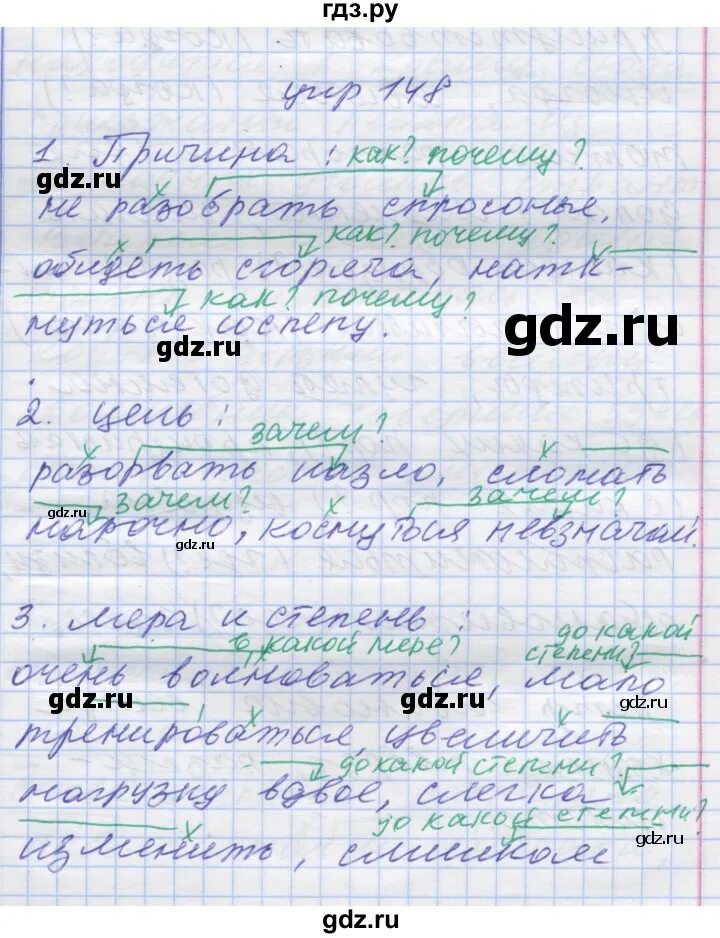 гдз.ру
упр 148
1. Причина : как? почему?
gdz.ru
не разобрать спросонье,
как? почему?
обидеть сгоряча, натк-
как? почему?
нуться сослепу.
gdz.ru
gdz.ru
2. цель :
зачем?
разорвать назло, сломать
зачем? зачем?
gdz.ru
нарочно, коснуться невзначай.
gdz.ru
3. мера и степень :
в какой мере? до какой степени?
очень волноваться, мало
gdz.ru
gdz.ru
тренироваться, увеличить
до какой степени?
нагрузку вдвое, слегка
до какой степени?
gdz.ru
изменить, слишком
gdz.ru